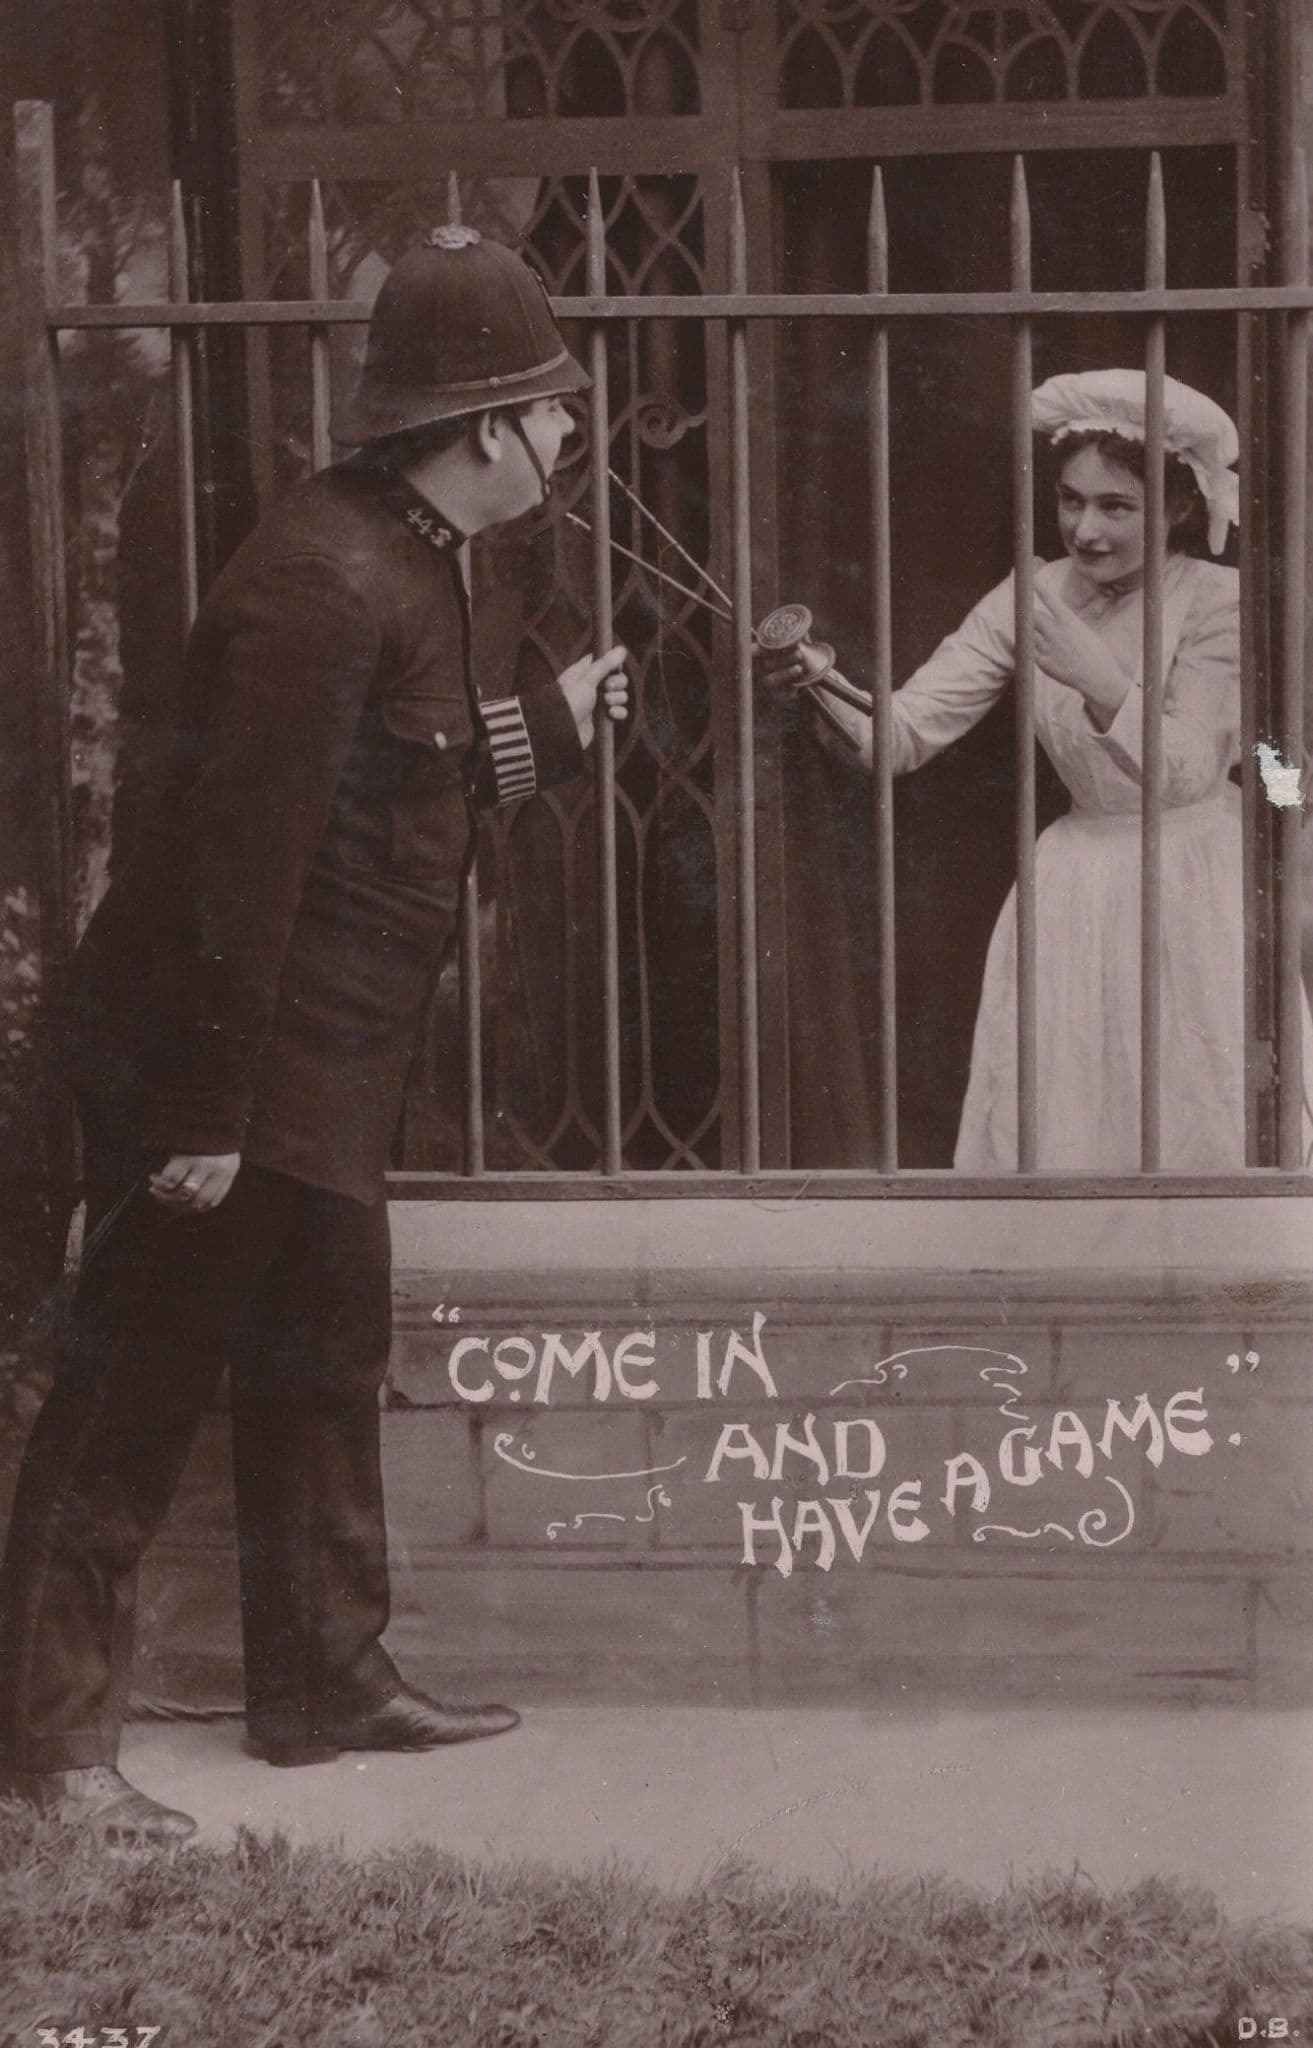 44
"COME IN
AND
HAVE A GAME."
3437
D.B.